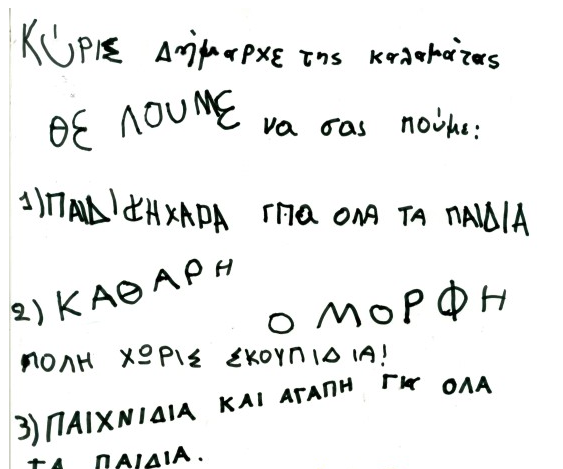 ΚΎΡΙΕ Δήμαρχε της καλαμάτας
ΘΕ ΛΟΥΜΕ να σας πούμε:
1) ΠΑΙΔΙΚΗ ΧΑΡΑ για ΟΛΑ ΤΑ ΠΑΙΔΙΑ
2) ΚΑΘΑΡΗ Ο ΜΟΡΦΗ
ΠΟΛΗ ΧΩΡΙΣ ΣΚΟΥΠΙΔΙΑ!
3) ΠΑΙΧΝΙΔΙΑ ΚΑΙ ΑΓΑΠΗ ΓΙΑ ΟΛΑ
ΤΑ ΠΑΙΔΙΑ.